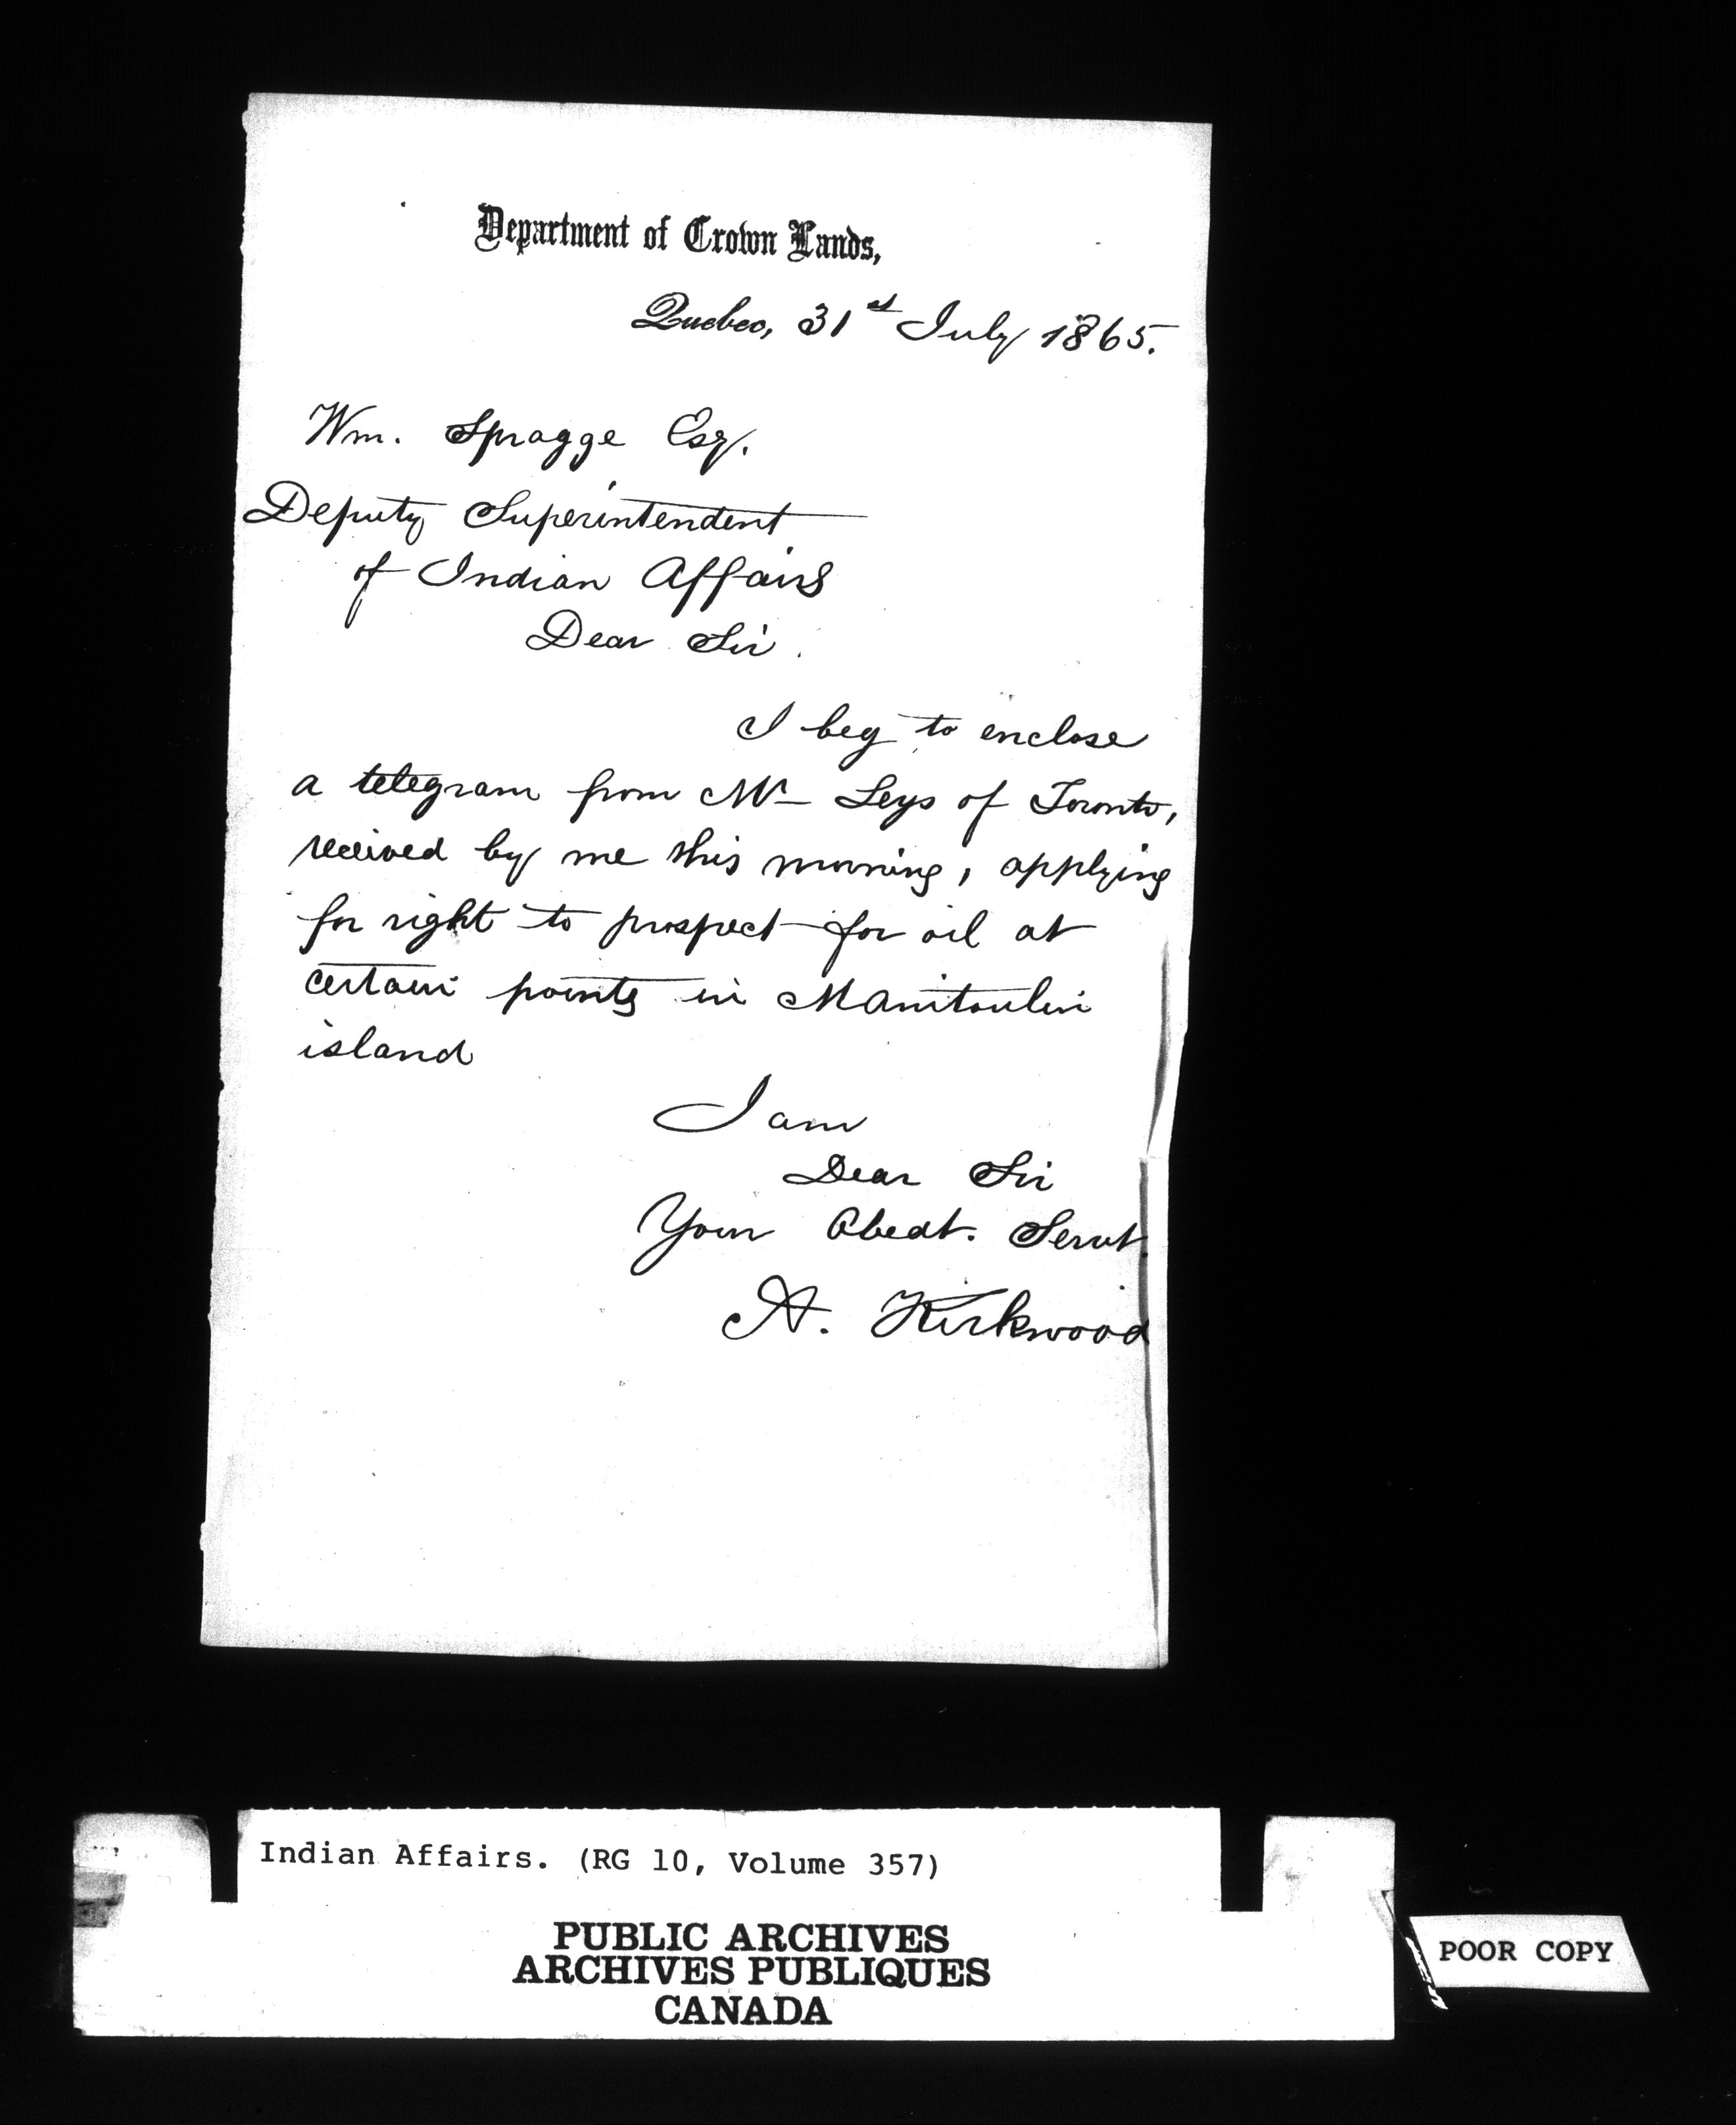 Department of Crown Lands,
Quebec, 31st July 1865.
Wm. Spragge Esq.
Deputy Superintendent
of Indian Affairs
Dear Sir.
I beg to enclose
a telegram from Mr Leys of Toronto,
received by me this morning, applying
for right to prospect for oil at
certain points in Manitoulin
island
I am
Dear Sir
Your Obedt. Servt
A. Kirkwood
Indian Affairs. (RG 10, Volume 357)
PUBLIC ARCHIVES
ARCHIVES PUBLIQUES
CANADA
POOR COPY